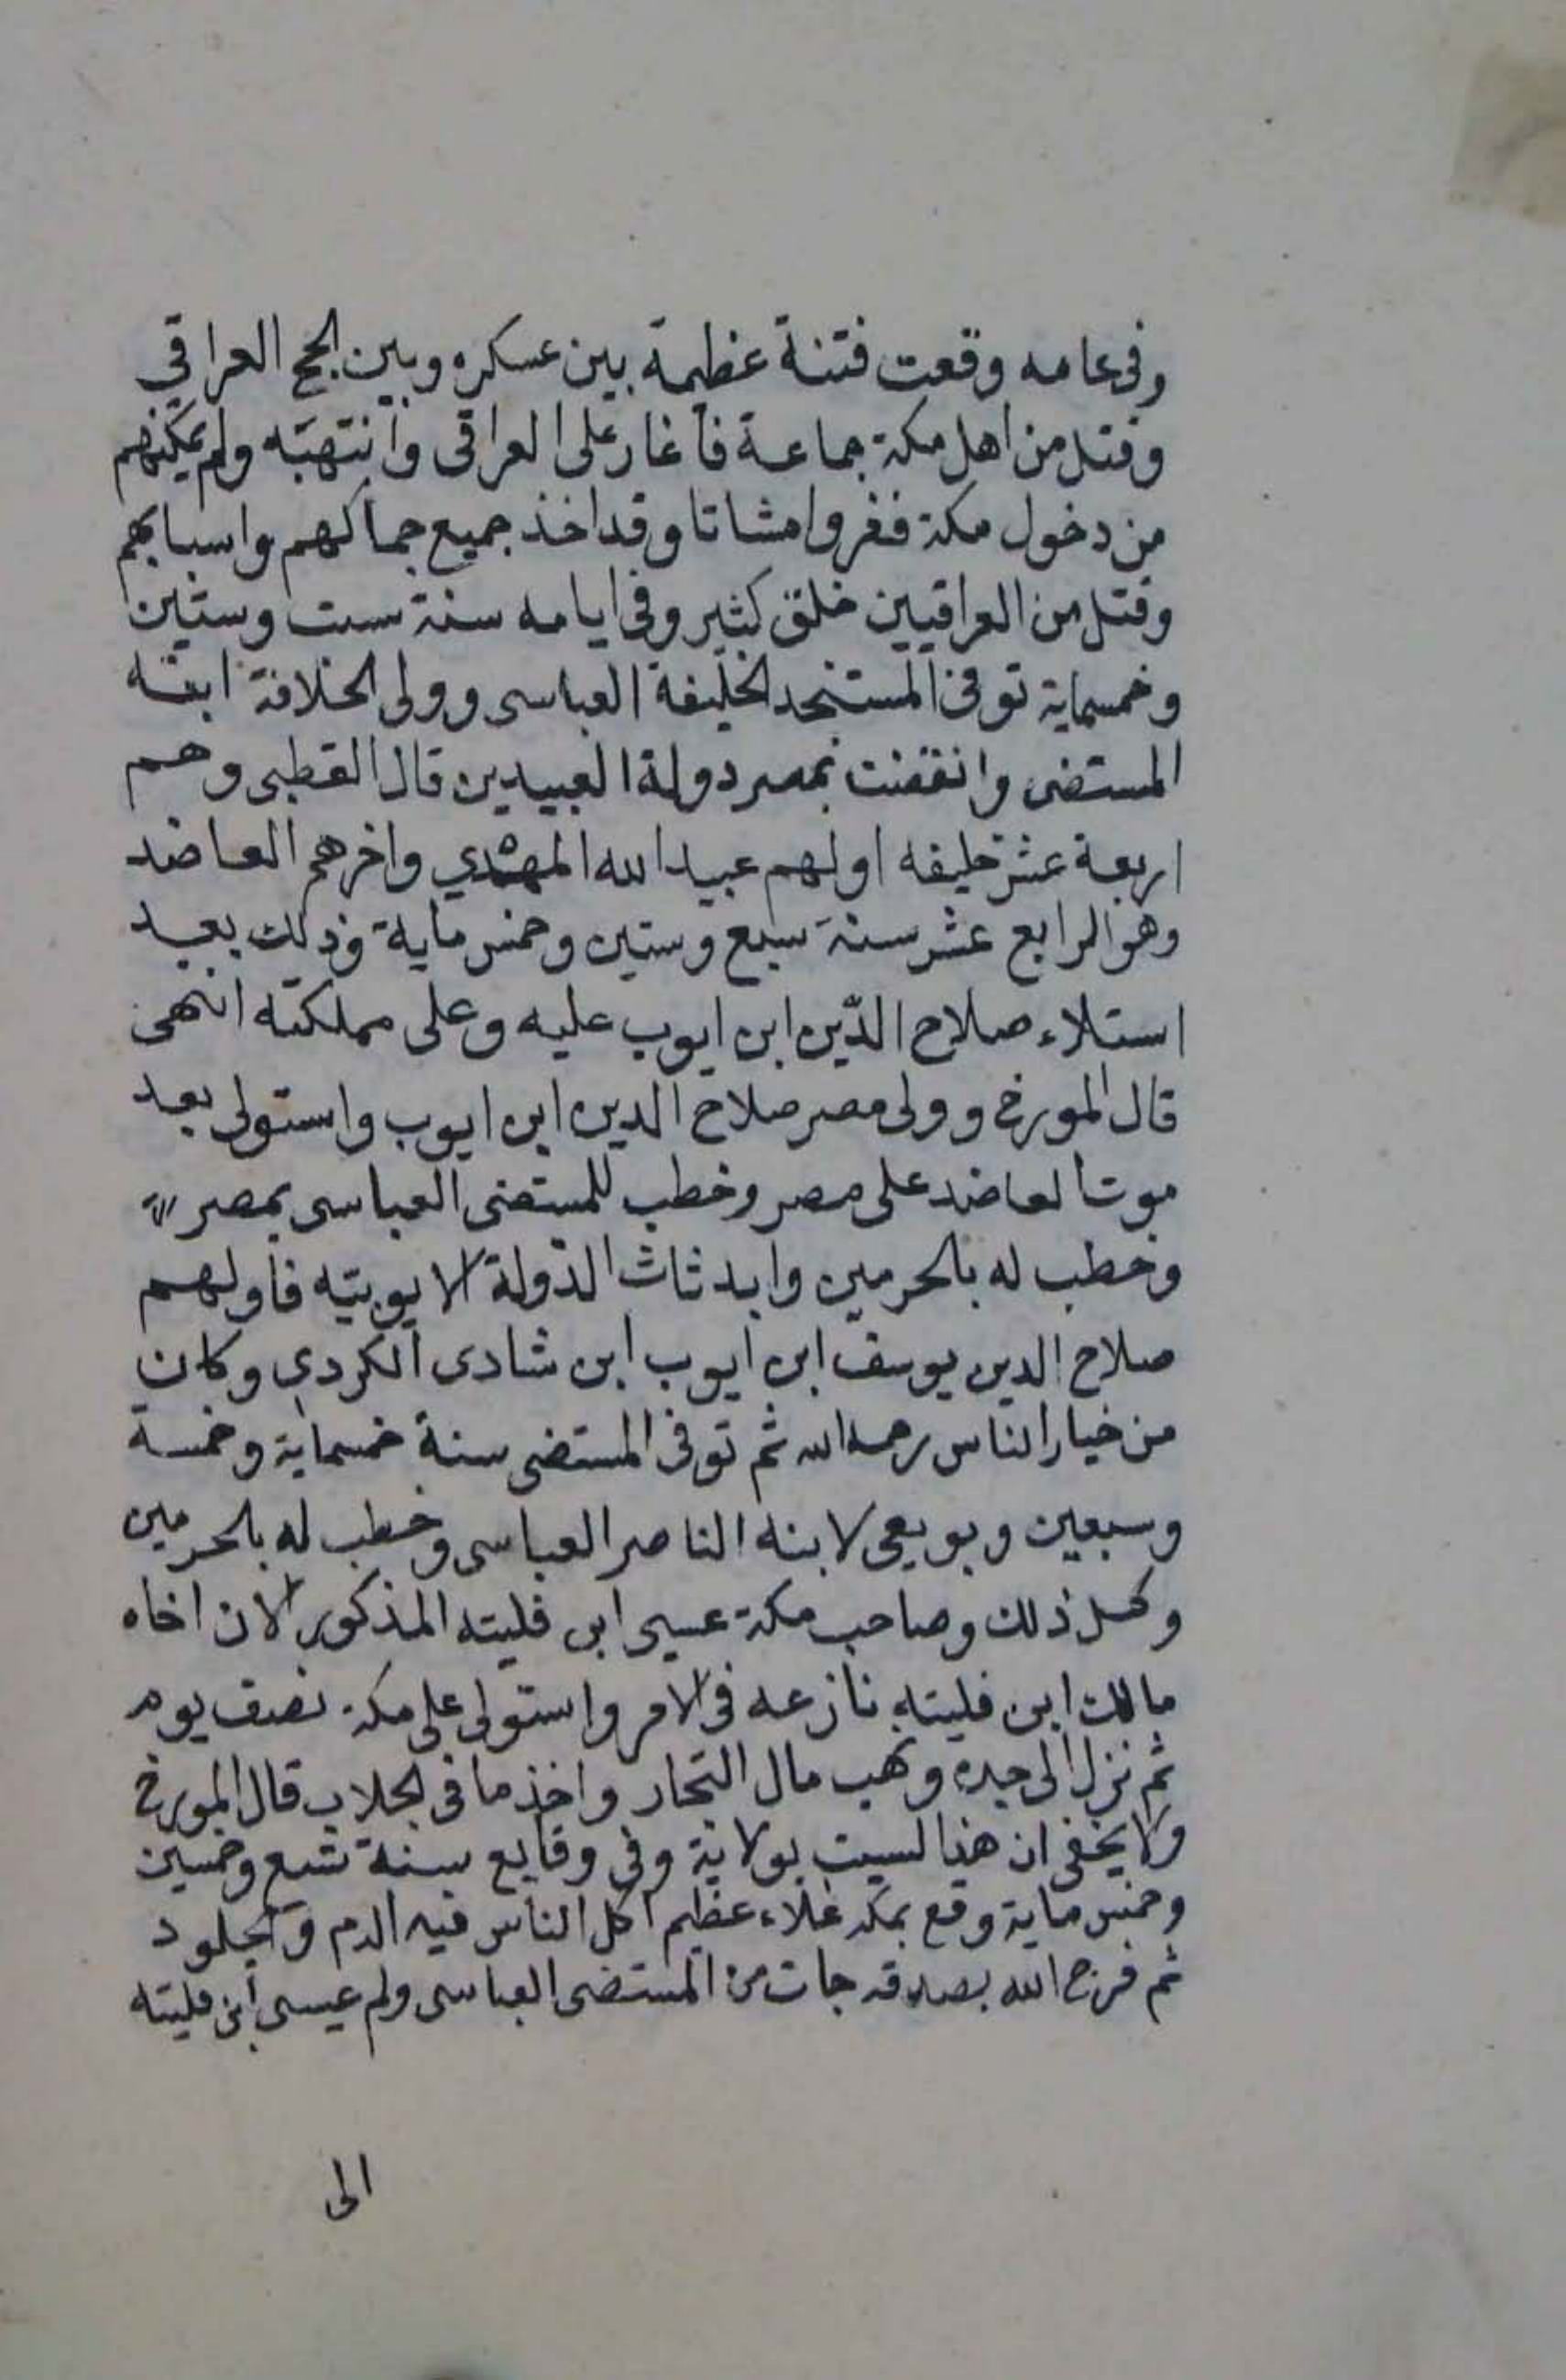 وفى عامه وقعت فتنة عظيمة بين عسكره وبين الحج العراقي
وقتل من اهل مكة جماعة فأغار على العراقى وانتهبه ولم يمكنهم
من دخول مكة ففروا مشاتا وقد اخذ جميع جمالهم واسبابهم
وقتل من العراقيين خلق كثير وفى ايامه سنة ست وستين
وخمسماية توفى المستنجد الخليفة العباسى وولى الخلافة ابنه
المستضى وانقضت بمصر دولة العبيدين قال القطبى وهم
اربعة عشر خليفه اولهم عبيد الله المهدي واخرهم العاضد
وهو الرابع عشر سنة سبع وستين وخمس ماية وذلك بعيد
استلاء صلاح الدّين ابن ايوب عليه وعلى مملكته انتهى
قال المورخ وولى مصر صلاح الدين ابن ايوب واستولى بعد
موت العاضد على مصر وخطب للمستضى العباسى بمصر
وخطب له بالحرمين وابدئات الدولة الايوبيّه فأولهم
صلاح الدين يوسف ابن ايوب ابن شادى الكردي وكان
من خيار الناس رحمه الله ثم توفى المستضى سنة خمسماية وخمسة
وسبعين وبويعى لابنه الناصر العباسى وخطب له بالحرمين
وكل ذلك وصاحب مكة عيسى ابن فليته المذكور الا ان اخاه
مالك ابن فليته نازعه فى الامر واستولى على مكة نصف يوم
ثم نزل الى جده ونهب مال التجار واخذ ما فى الجلاب قال المورخ
ولا يخفى ان هذا ليست بولاية وفى وقايع سنة تسع وخمسين
وخمس ماية وقع بمكه غلاء عظيم اكل الناس فيه الدم والجلود
ثم فرج الله بصدقه جات من المستضى العباسى ولم عيسى ابن فليته
الى